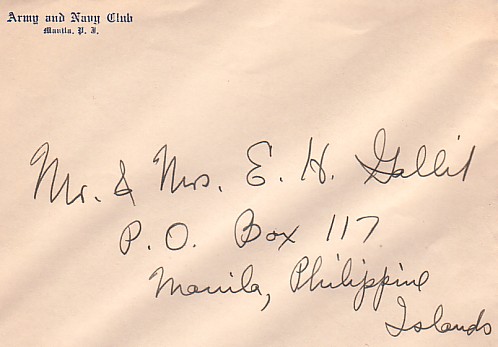 Army and Navy Club
Manila, P. I.
Mr. & Mrs. E. H. Gallit
P.O. Box 117
Manila, Philippine
Islands